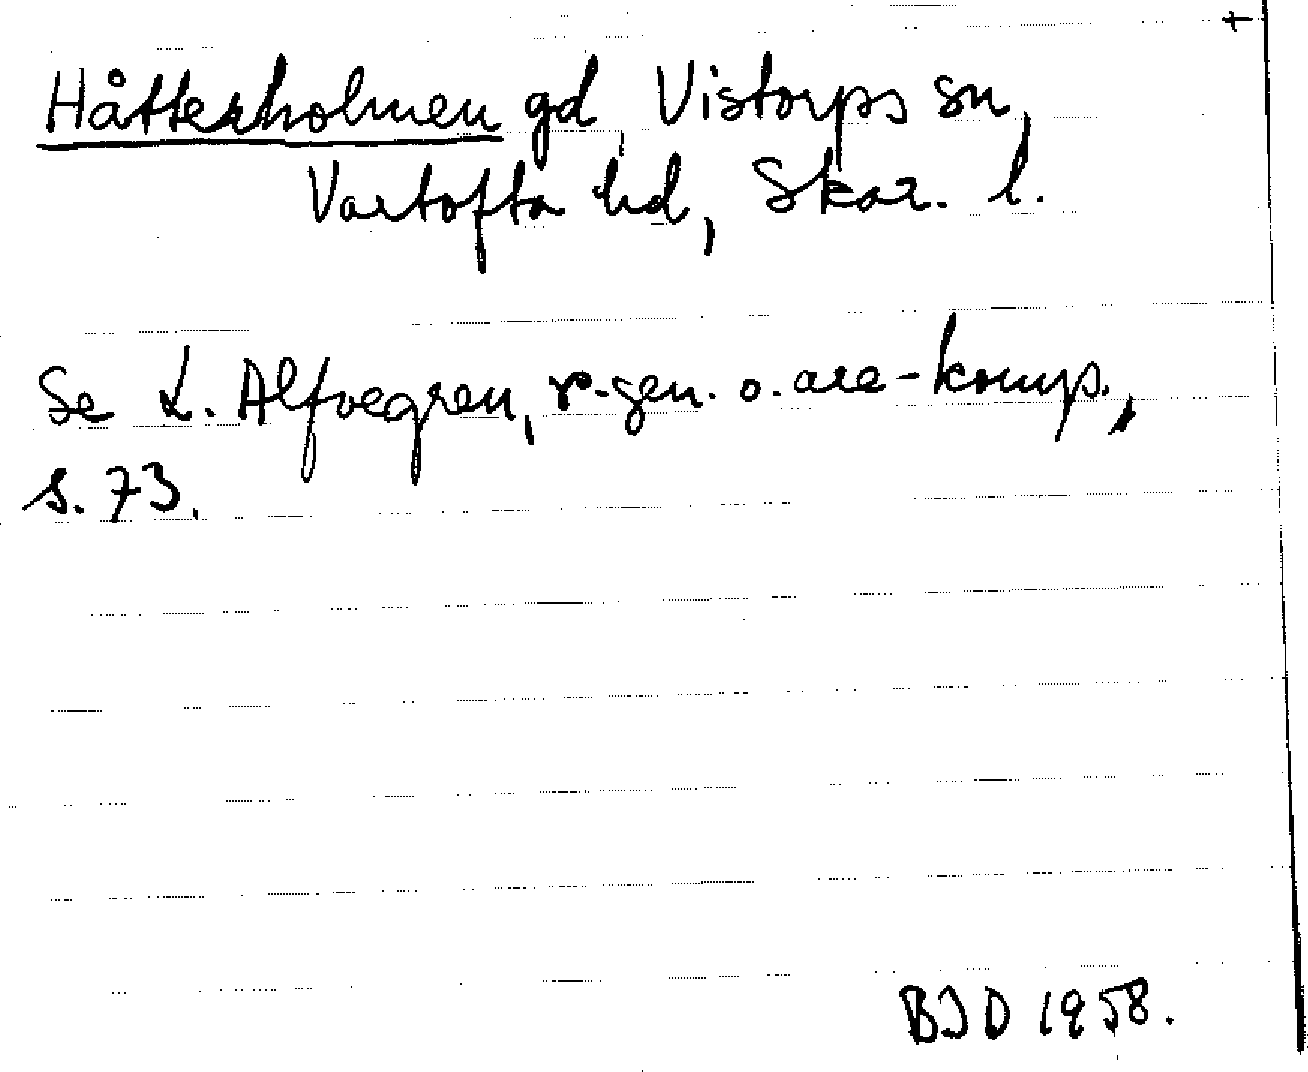 +
Håtterholmen gd, Vistorps sn,
Vartofta hd, Skar. l.
Se L. Alfvegren, r-gen. o. are-komp.,
s. 73.
BJD 1958.